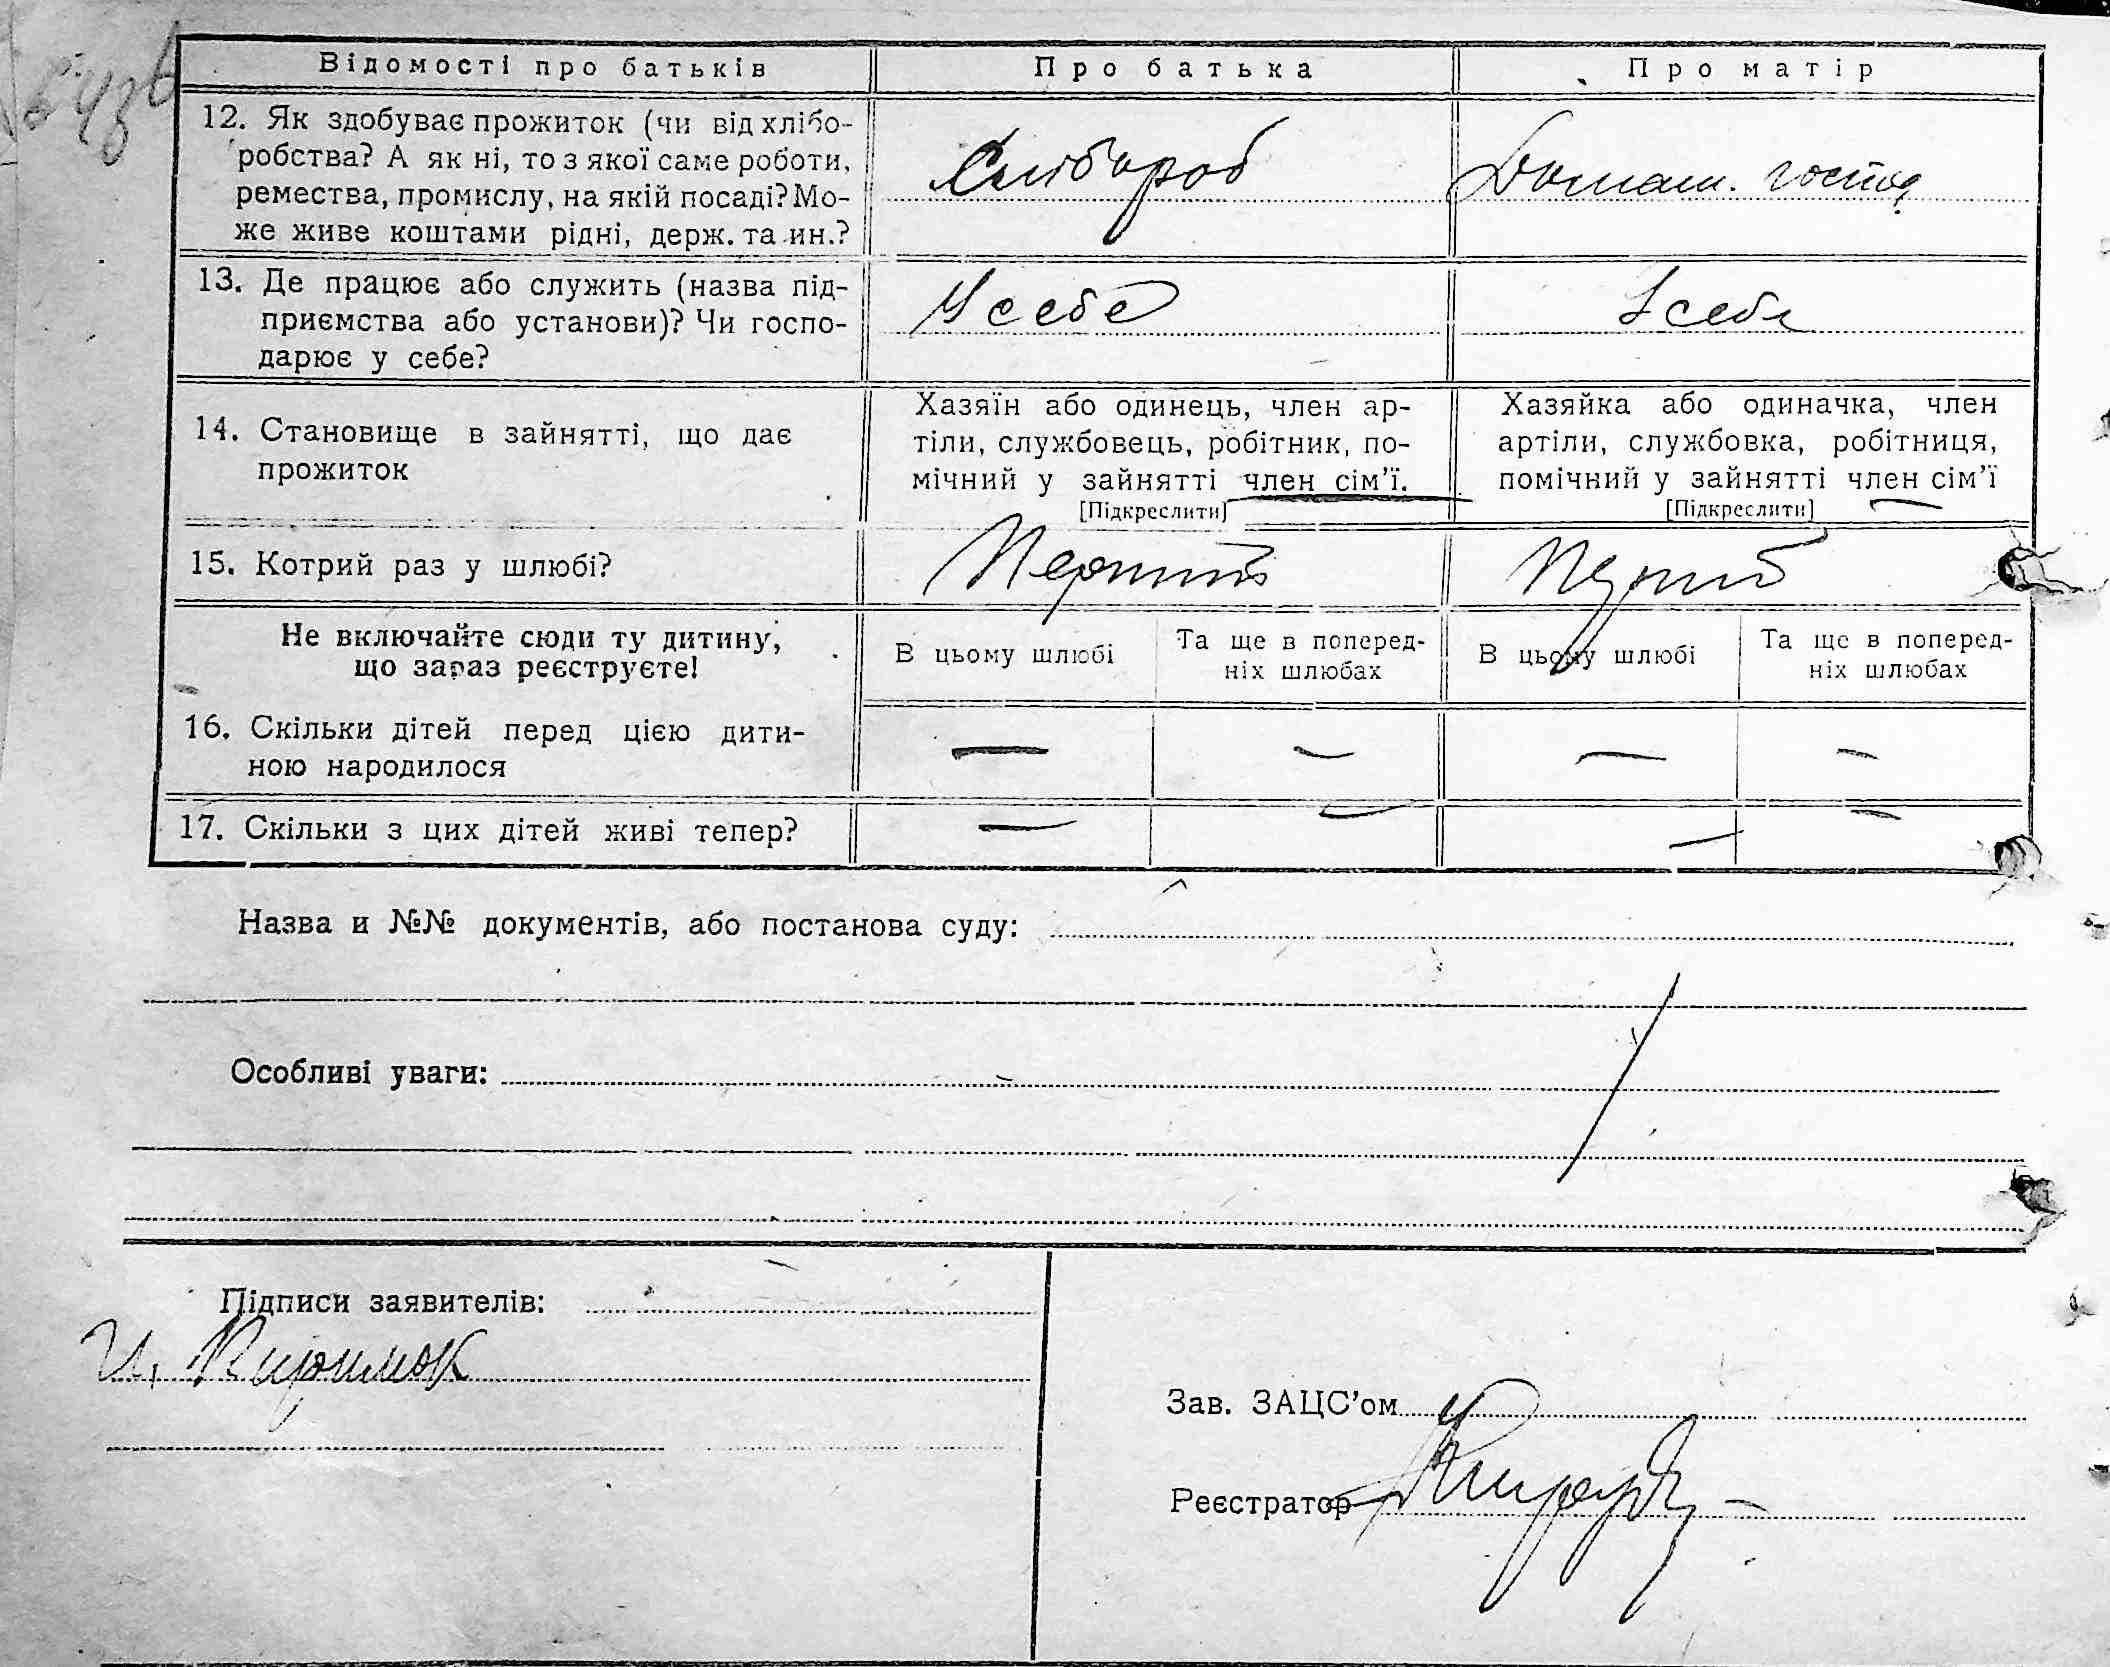 Відомості про батьків
Про батька
Про матір
12. Як здобуває прожиток (чи від хлібо-
робства? А як ні, то з якої саме роботи,
ремества, промислу, на якій посаді? Мо-
же живе коштами рідні, держ. та ин.?
Хлібороб
Домаш. господ
13. Де працює або служить (назва під-
приємства або установи)? Чи госпо-
дарює у себе?
У себе
У себе
14. Становище в зайнятті, що дає
прожиток
Хазяїн або одинець, член ар-
тіли, службовець, робітник, по-
мічний у зайнятті член сім’ї.
[Підкреслити]
Хазяйка або одиначка, член
артіли, службовка, робітниця,
помічний у зайнятті член сім’ї
[Підкреслити]
15. Котрий раз у шлюбі?
Перший
Перший
Не включайте сюди ту дитину,
що зараз реєструєте!
В цьому шлюбі
Та ще в поперед-
ніх шлюбах
В цьому шлюбі
Та ще в поперед-
ніх шлюбах
16. Скільки дітей перед цією дити-
ною народилося
— — — —
17. Скільки з цих дітей живі тепер?
— — — —
Назва и №№ документів, або постанова суду:
Особливі уваги:
Підписи заявителів:
Зав. ЗАЦС’ом
Реєстратор